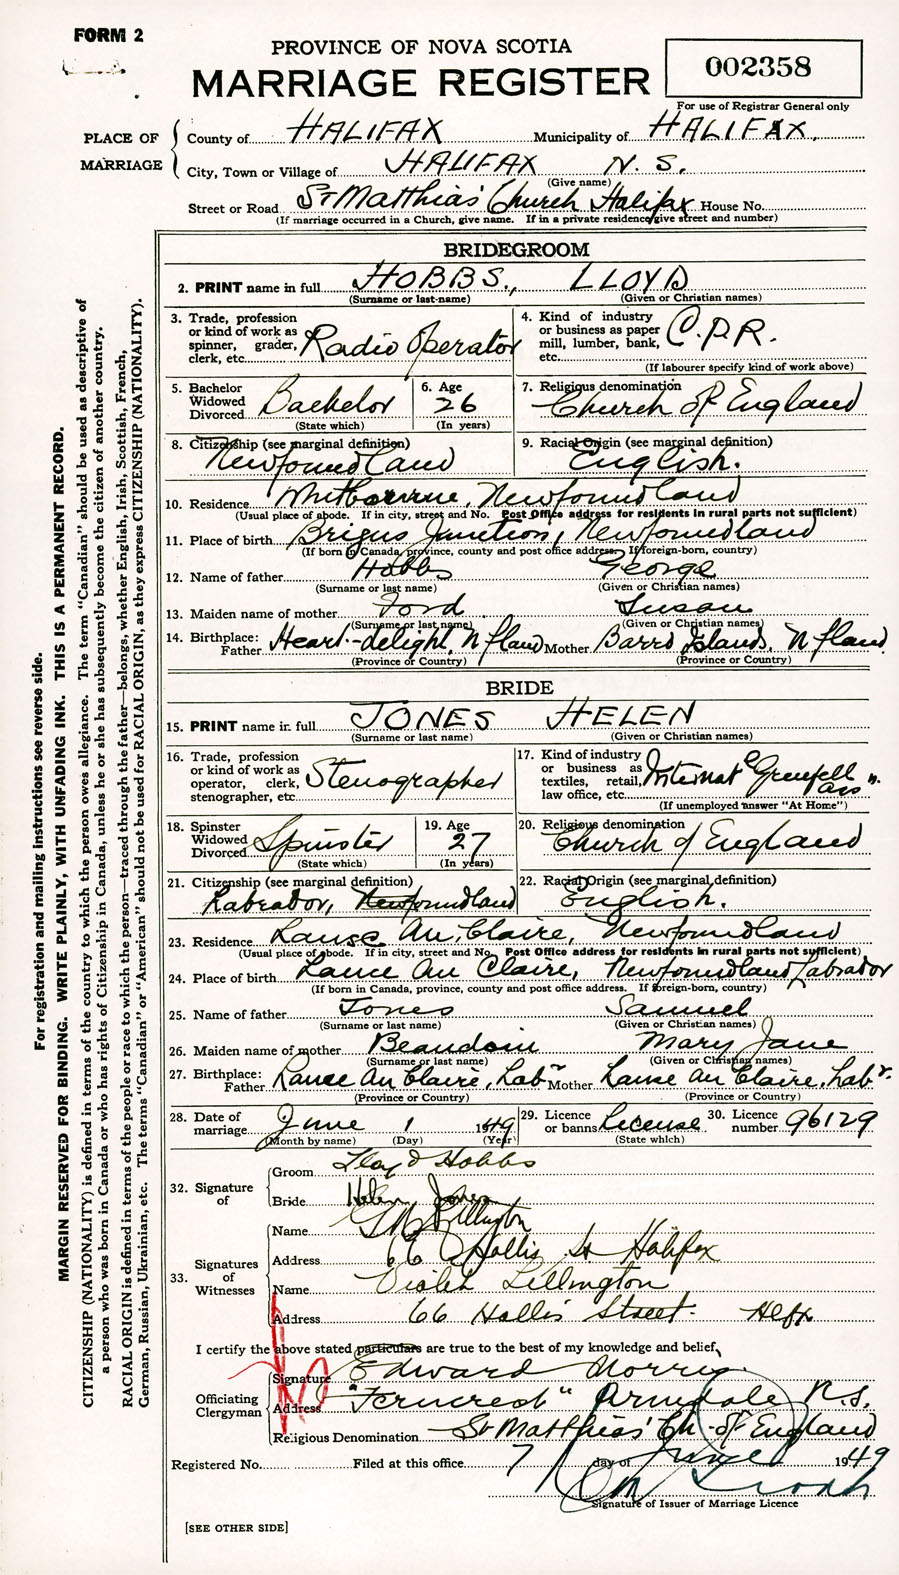 FORM 2
PROVINCE OF NOVA SCOTIA
MARRIAGE REGISTER
002358
For use of Registrar General only
PLACE OF MARRIAGE
County of HALIFAX Municipality of HALIFAX.
City, Town or Village of HALIFAX N. S.
(Give name)
Street or Road St Matthias' Church Halifax House No.
(If marriage occurred in a Church, give name. If in a private residence give street and number)
BRIDEGROOM
2. PRINT name in full HOBBS., LLOYD
(Surname or last name) (Given or Christian names)
3. Trade, profession or kind of work as spinner, grader, clerk, etc. Radio Operator
4. Kind of industry or business as paper mill, lumber, bank, etc. C.P.R.
(If labourer specify kind of work above)
5. Bachelor Widowed Divorced Bachelor
(State which)
6. Age 26
(In years)
7. Religious denomination
Church of England
8. Citizenship (see marginal definition)
Newfoundland
9. Racial Origin (see marginal definition)
English.
10. Residence Whitbourne, Newfoundland
(Usual place of abode. If in city, street and No. Post Office address for residents in rural parts not sufficient)
11. Place of birth Brigus Junction, Newfoundland
(If born in Canada, province, county and post office address. If foreign-born, country)
12. Name of father Hobbs George
(Surname or last name) (Given or Christian names)
13. Maiden name of mother Ford Susan
(Surname or last name) (Given or Christian names)
14. Birthplace: Father Heart-delight, Nfland Mother Barrd Islands, Nfland
(Province or Country) (Province or Country)
BRIDE
15. PRINT name in full JONES HELEN
(Surname or last name) (Given or Christian names)
16. Trade, profession or kind of work as operator, clerk, stenographer, etc. Stenographer
17. Kind of industry or business as textiles, retail, law office, etc. Internat Grenfell Ass n.
(If unemployed answer "At Home")
18. Spinster Widowed Divorced Spinster
(State which)
19. Age 27
(In years)
20. Religious denomination
Church of England
21. Citizenship (see marginal definition)
Labrador, Newfoundland
22. Racial Origin (see marginal definition)
English.
23. Residence Lanse Au Claire, Newfoundland
(Usual place of abode. If in city, street and No. Post Office address for residents in rural parts not sufficient)
24. Place of birth Lance Au Claire, Newfoundland Labrador
(If born in Canada, province, county and post office address. If foreign-born, country)
25. Name of father Jones Samuel
(Surname or last name) (Given or Christian names)
26. Maiden name of mother Beaudoin Mary Jane
(Surname or last name) (Given or Christian names)
27. Birthplace: Father Lanse Au Claire, Labr Mother Lanse Au Claire, Labr.
(Province or Country) (Province or Country)
28. Date of marriage June 1 1949
(Month by name) (Day) (Year)
29. Licence or banns License
(State which)
30. Licence number 96129
32. Signature of
Groom Lloyd Hobbs
Bride Helen Jones
33. Signatures of Witnesses
Name Lillington
Address 66 Hollis St Halifax
Name Violet Lillington
Address 66 Hollis Street. Hlfx
I certify the above stated particulars are true to the best of my knowledge and belief,
Officiating Clergyman
Signature Edward Norris.
Address "Ferncrest" Armdale N.S.
Religious Denomination St Matthias' Ch. of England
Registered No. Filed at this office 7 day of June 1949
Signature of Issuer of Marriage Licence
[SEE OTHER SIDE]
For registration and mailing instructions see reverse side.
MARGIN RESERVED FOR BINDING. WRITE PLAINLY, WITH UNFADING INK. THIS IS A PERMANENT RECORD.
CITIZENSHIP (NATIONALITY) is defined in terms of the country to which the person owes allegiance. The term "Canadian" should be used as descriptive of
a person who was born in Canada or who has rights of Citizenship in Canada, unless he or she has subsequently become the citizen of another country.
RACIAL ORIGIN is defined in terms of the people or race to which the person—traced through the father—belongs, whether English, Irish, Scottish, French,
German, Russian, Ukrainian, etc. The terms "Canadian" or "American" should not be used for RACIAL ORIGIN, as they express CITIZENSHIP (NATIONALITY).